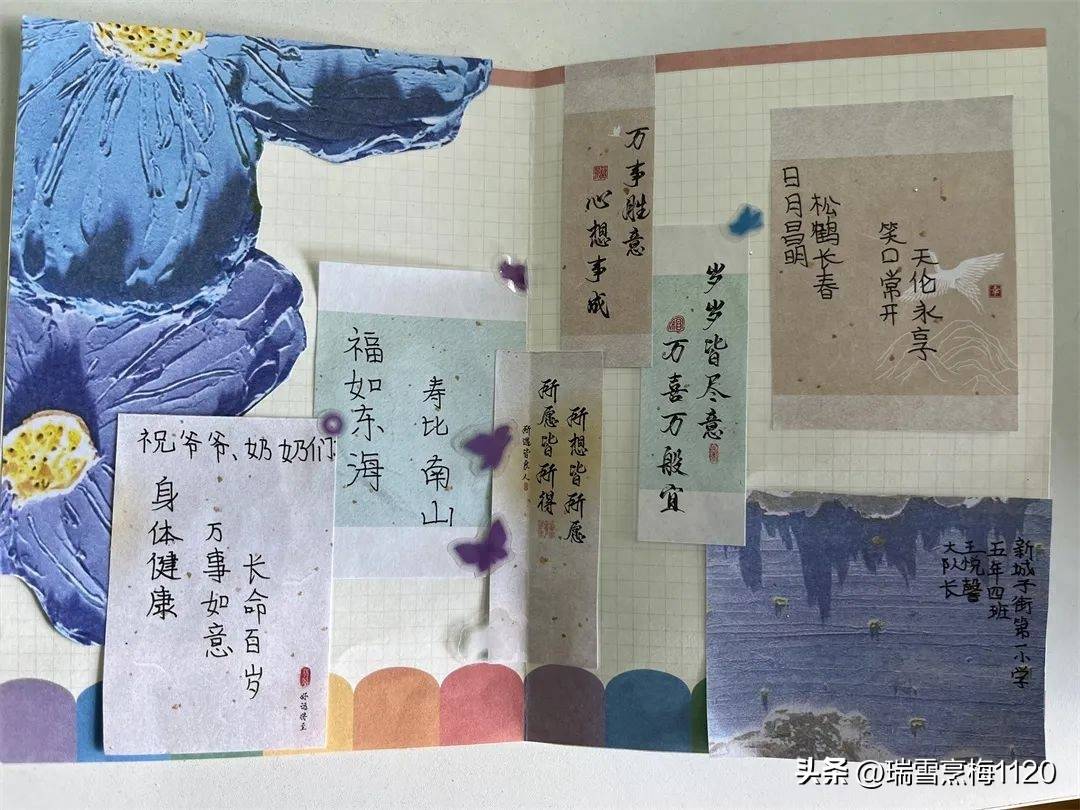 祝爷爷、奶奶们:
身体健康
万事如意
长命百岁
福如东海
寿比南山
万事胜意
心想事成
所想皆所愿
所愿皆所得
所遇皆良人
岁岁皆尽意
万喜万般宜
日月昌明
松鹤长春
笑口常开
天伦永享
新城子街第一小学
五年四班
王悦馨
大队长
头条 @瑞雪烹梅1120